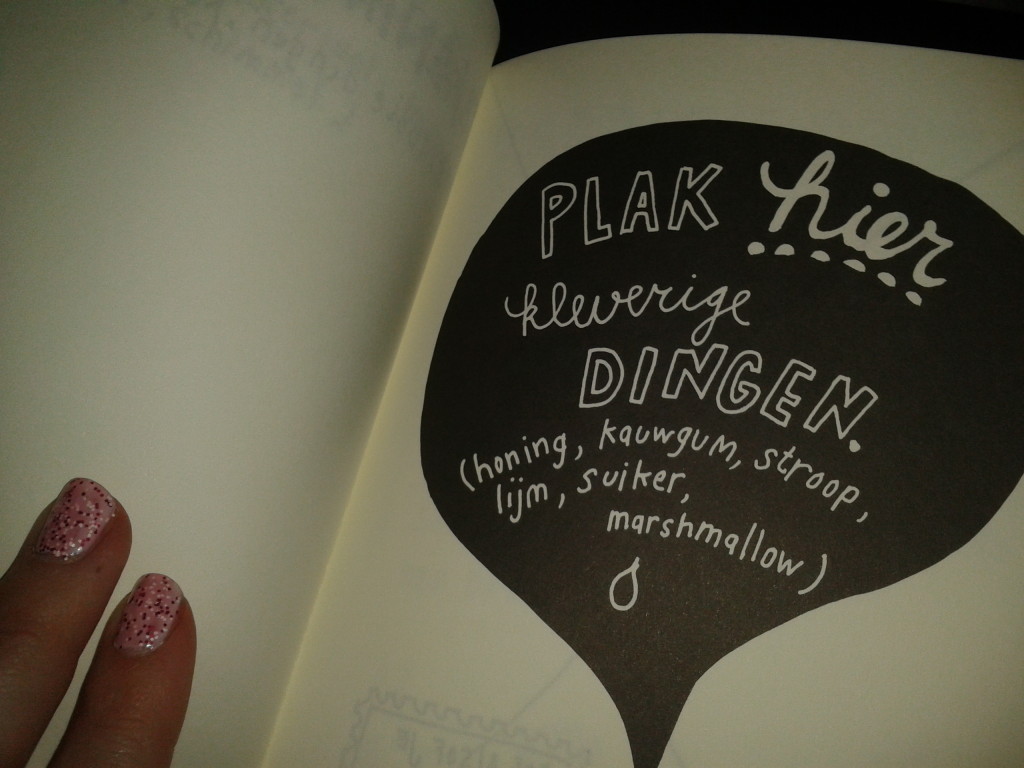 PLAK hier
kleverige
DINGEN.
(honing, kauwgum, stroop,
lijm, suiker,
marshmallow)